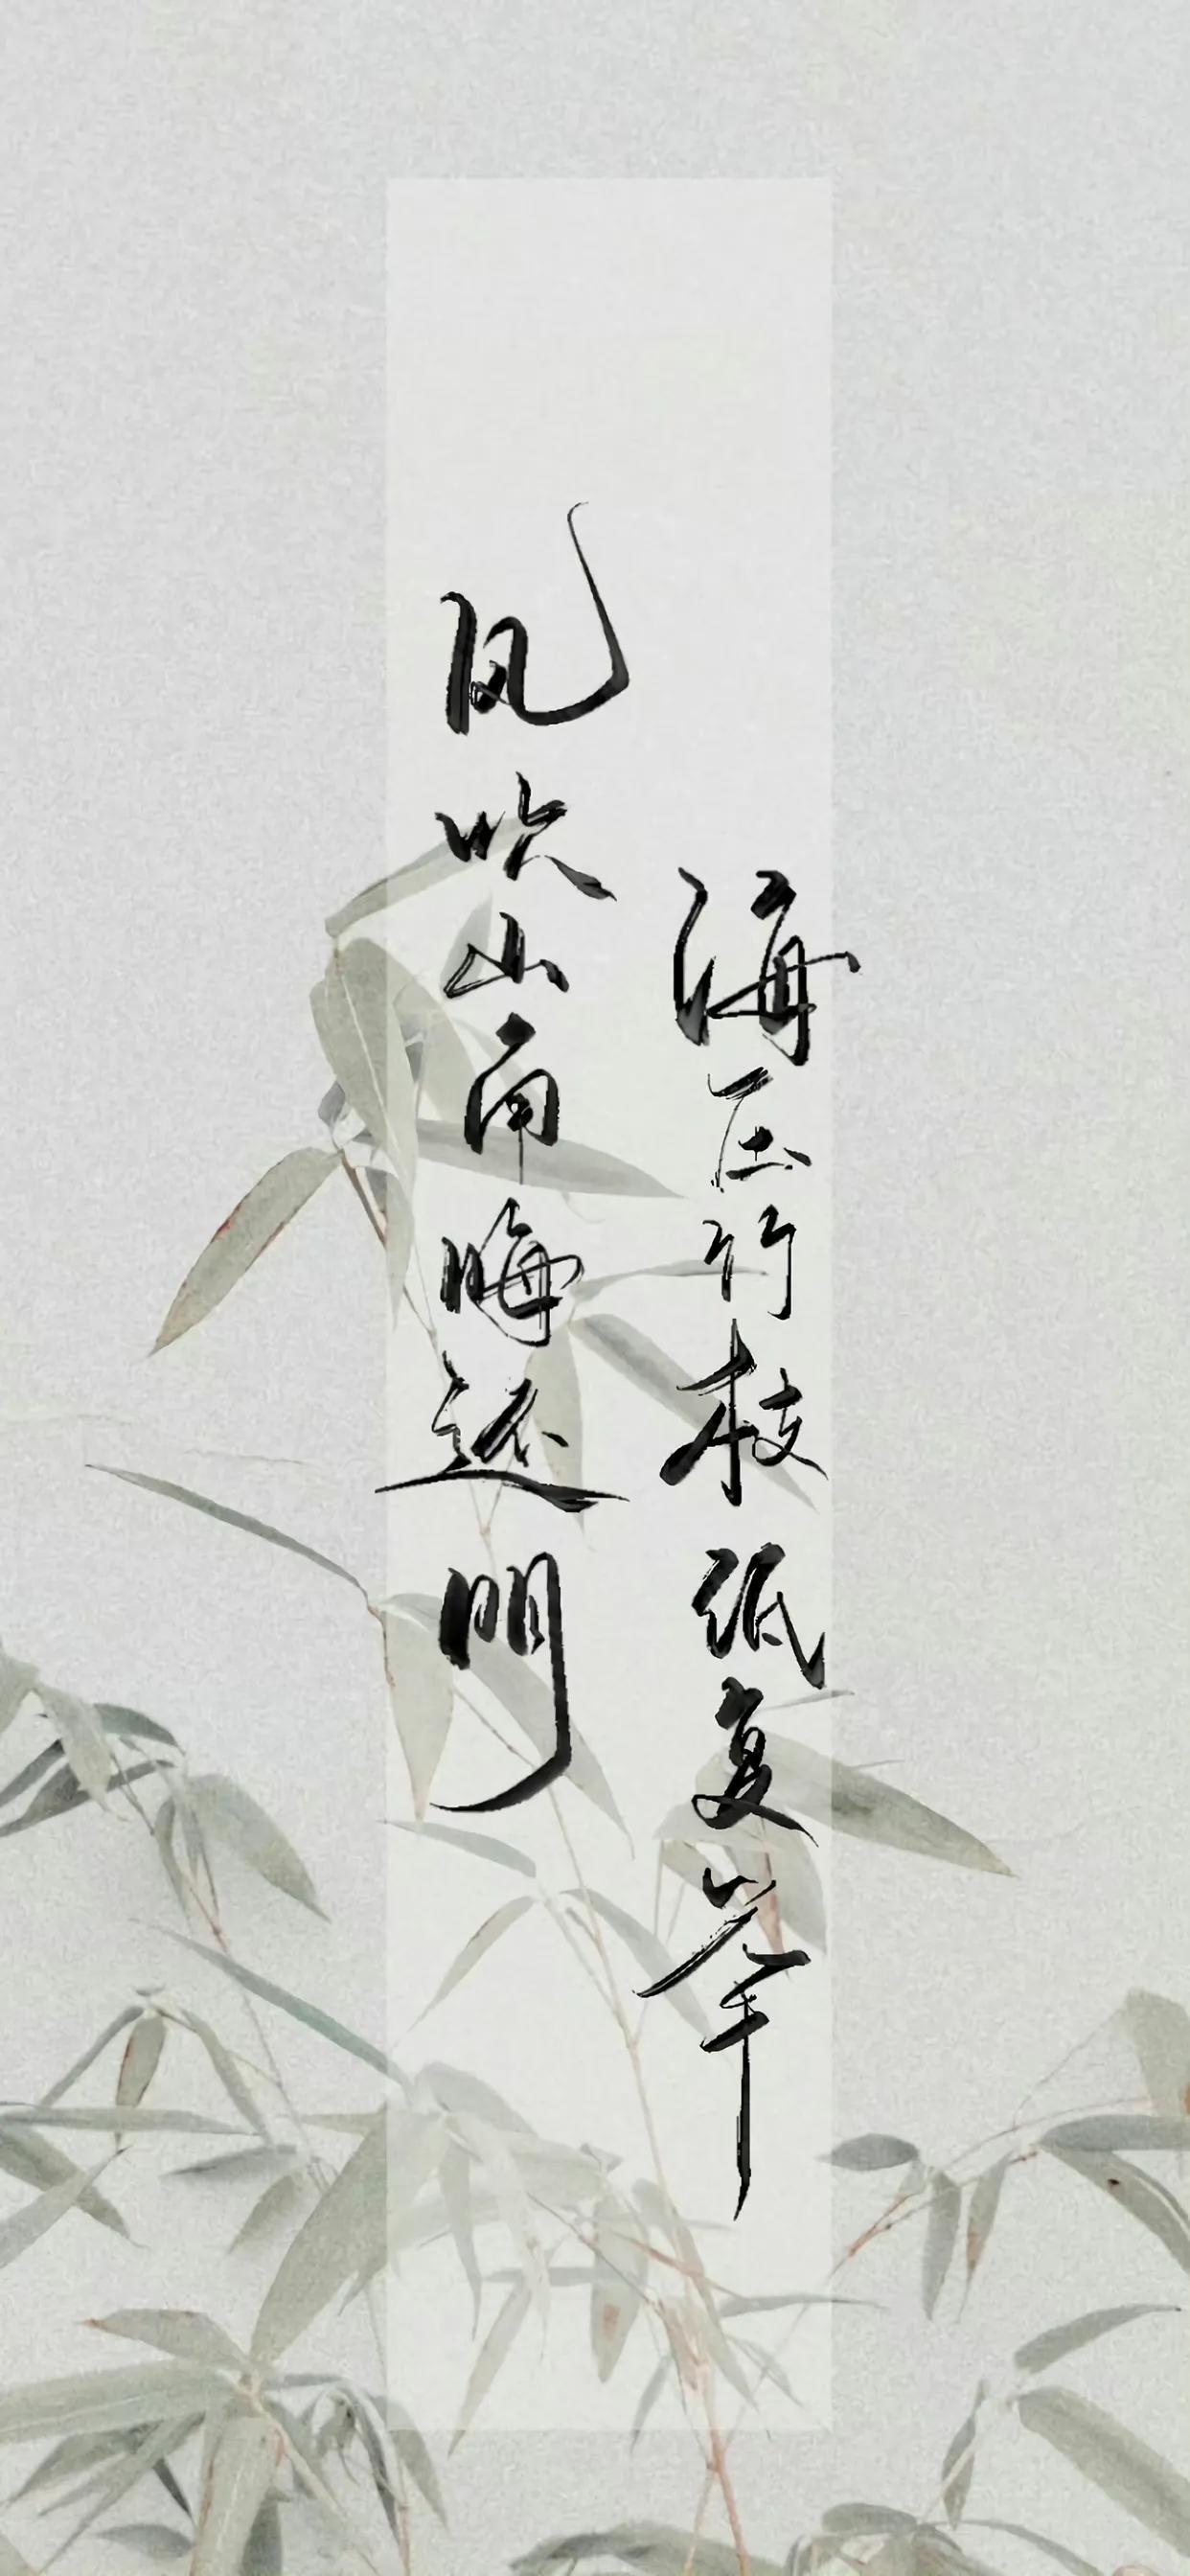 海压竹枝纸复举
风吹山角晦还明